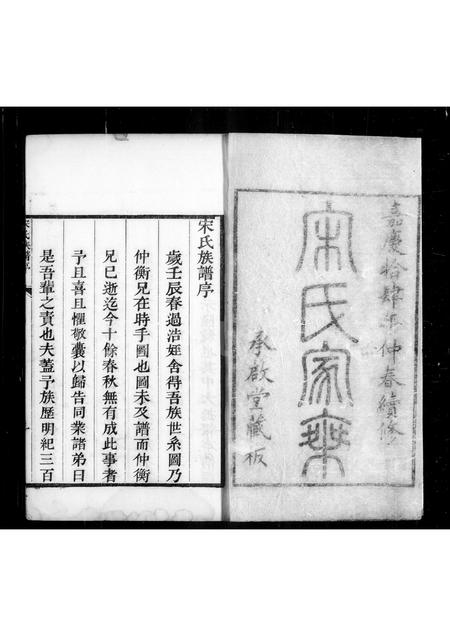 嘉慶拾肆年仲春續修
宋氏家乘
承啟堂藏板
宋氏族譜序
歲壬辰春過浩姪舍得吾族世系圖乃
仲衡兄在時手圖也圖未及譜而仲衡
兄已逝迄今十餘春秋無有成此事者
予且喜且懼敬囊以歸告同業諸弟曰
是吾輩之責也夫蓋予族歷明紀三百
宋氏族譜序